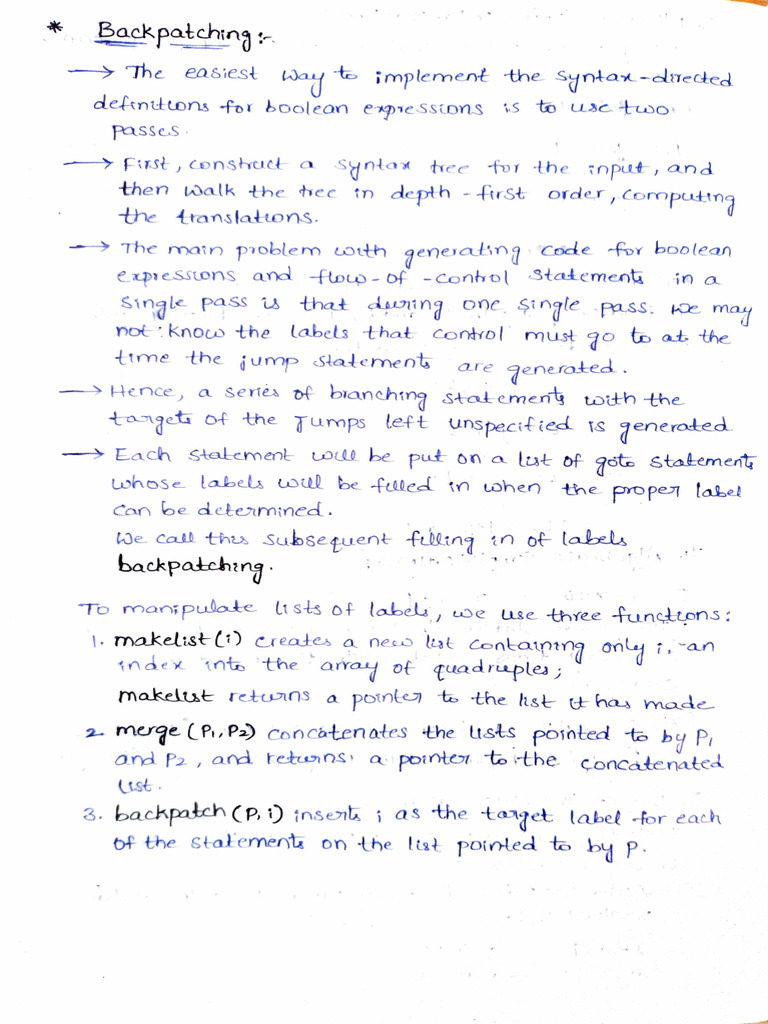 * Backpatching:-
→ The easiest way to implement the syntax-directed
definitions for boolean expressions is to use two
passes.
→ First, construct a syntax tree for the input, and
then walk the tree in depth-first order, computing
the translations.
→ The main problem with generating code for boolean
expressions and flow-of-control statements in a
single pass is that during one single pass we may
not know the labels that control must go to at the
time the jump statements are generated.
→ Hence, a series of branching statements with the
targets of the Jumps left unspecified is generated
→ Each statement will be put on a list of goto statements
whose labels will be filled in when the proper label
can be determined.
We call this subsequent filling in of labels
backpatching.
To manipulate lists of labels, we use three functions:
1. makelist(i) creates a new list containing only i, an
index into the array of quadruples;
makelist returns a pointer to the list it has made
2. merge (P1, P2) concatenates the lists pointed to by P1
and P2, and returns a pointer to the concatenated
list.
3. backpatch (P, i) inserts i as the target label for each
of the statements on the list pointed to by P.